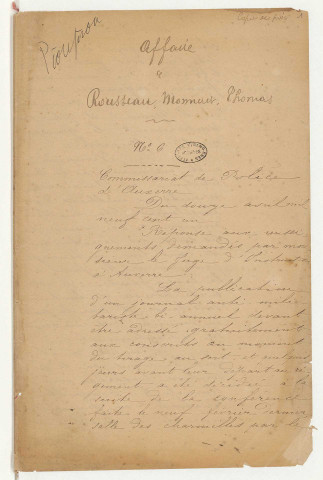 Pioupiou
Affaire
Rousseau, Monneret, Thomas
N° 6
Commissariat de Police
d'Auxerre
Du douze avril mil
neuf cent un
Réponse aux rensei
gnements demandés par mon
sieur le Juge d'Instruction
à Auxerre
La publication
d'un journal anti milita
bi annuel devant
être adressé gratuitement
aux conscrits au moment
du tirage au sort et quelques
jours avant leur départ au ré
giment a été décidée à la
suite de la conférence
faite le neuf février dernier
salle des charmilles par le